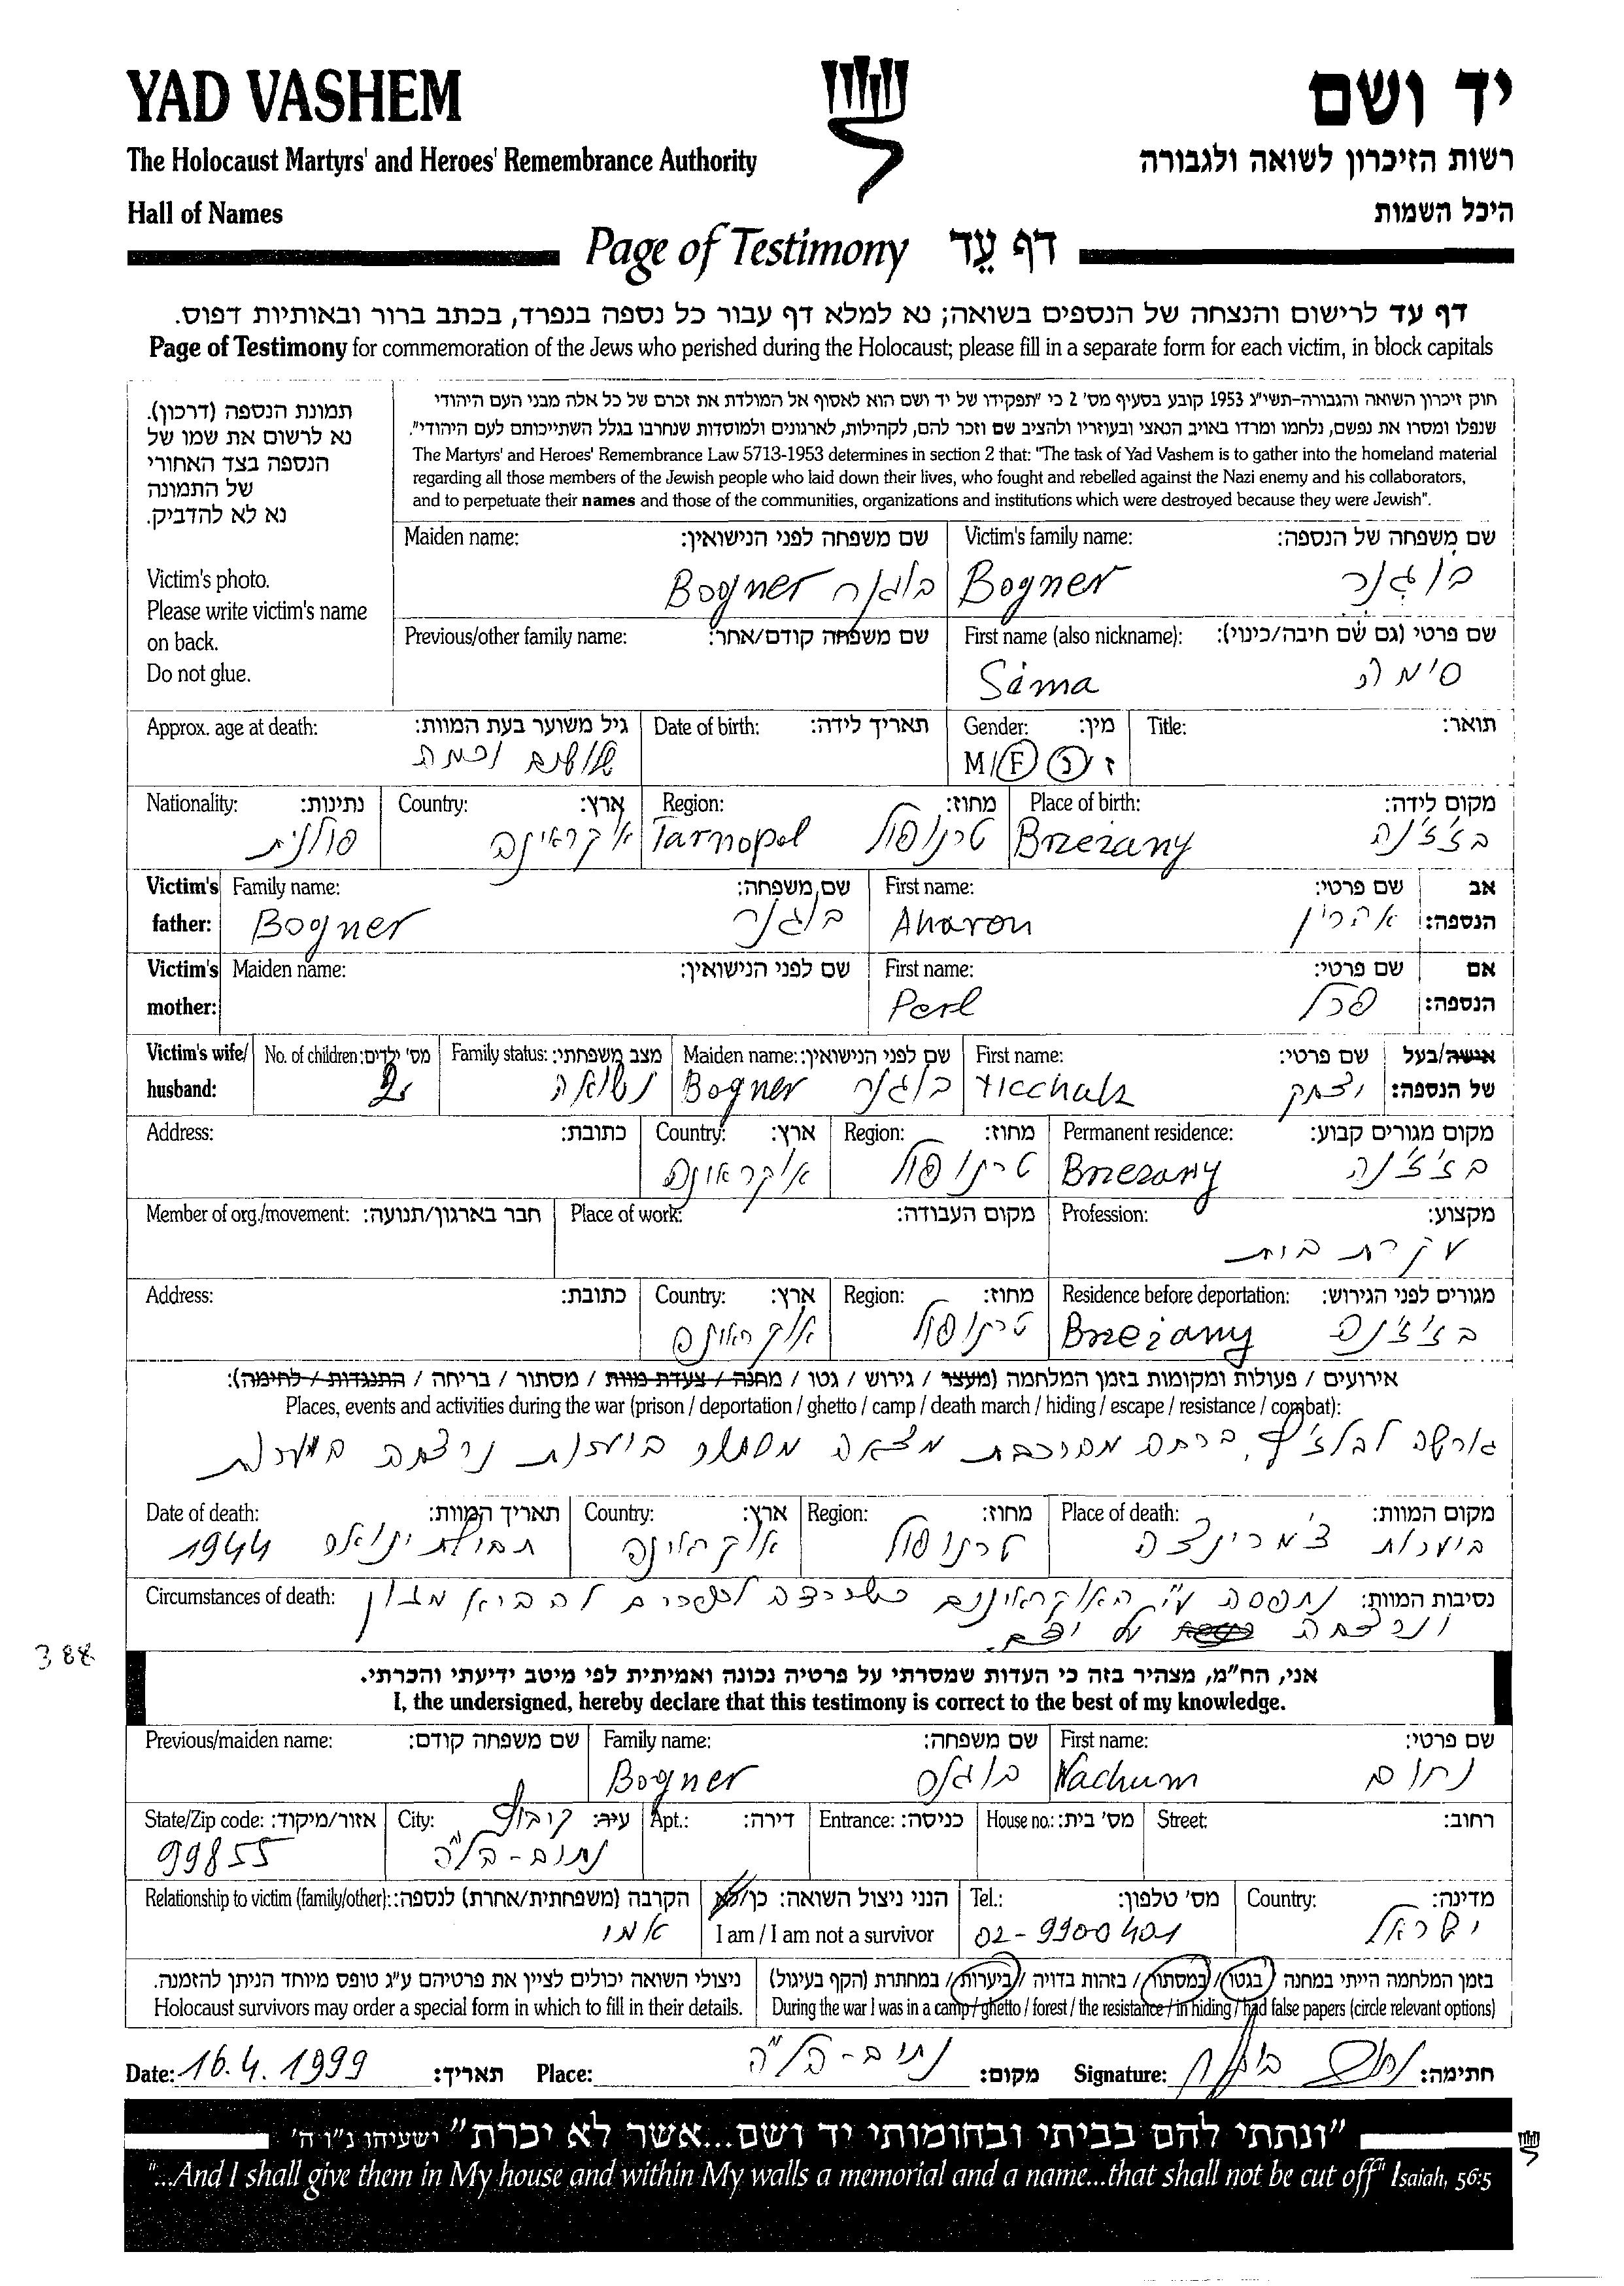 YAD VASHEM
יד ושם
The Holocaust Martyrs' and Heroes' Remembrance Authority
רשות הזיכרון לשואה ולגבורה
Hall of Names
היכל השמות
Page of Testimony דף עֵד
דף עד לרישום והנצחה של הנספים בשואה; נא למלא דף עבור כל נספה בנפרד, בכתב ברור ובאותיות דפוס.
Page of Testimony for commemoration of the Jews who perished during the Holocaust; please fill in a separate form for each victim, in block capitals
תמונת הנספה (דרכון).
נא לרשום את שמו של
הנספה בצד האחורי
של התמונה
נא לא להדביק.
Victim's photo.
Please write victim's name
on back.
Do not glue.
חוק זיכרון השואה והגבורה-תשי"ג 1953 קובע בסעיף מס' 2 כי "תפקידו של יד ושם הוא לאסוף אל המולדת את זכרם של כל אלה מבני העם היהודי
שנפלו ומסרו את נפשם, נלחמו ומרדו באויב הנאצי ובעוזריו ולהציב שם וזכר להם, לקהילות, לארגונים ולמוסדות שנחרבו בגלל השתייכותם לעם היהודי".
The Martyrs' and Heroes' Remembrance Law 5713-1953 determines in section 2 that: "The task of Yad Vashem is to gather into the homeland material
regarding all those members of the Jewish people who laid down their lives, who fought and rebelled against the Nazi enemy and his collaborators,
and to perpetuate their names and those of the communities, organizations and institutions which were destroyed because they were Jewish".
שם משפחה של הנספה: Victim's family name: שם משפחה לפני הנישואין: Maiden name:
בוגנר Bogner בוגנר Bogner
שם פרטי (גם שם חיבה/כינוי): First name (also nickname): שם משפחה קודם/אחר: Previous/other family name:
סימה Sima
תואר: Title: מין: Gender: תאריך לידה: Date of birth: גיל משוער בעת המוות: Approx. age at death:
ז/נ M/F שלושים וכמה
מקום לידה: Place of birth: מחוז: Region: ארץ: Country: נתינות: Nationality:
בז'ז'נה Brzeżany טרנופול Tarnopol אוקראינה פולנית
אב הנספה: שם פרטי: First name: שם משפחה: Family name: Victim's father:
אהרון Aharon בוגנר Bogner
אם הנספה: שם פרטי: First name: שם לפני הנישואין: Maiden name: Victim's mother:
פרל Perl
אישה/בעל של הנספה: שם פרטי: First name: שם לפני הנישואין: Maiden name: מצב משפחתי: Family status: מס' ילדים: No. of children: Victim's wife/ husband:
יצחק Yicchak בוגנר Bogner נשואה 2
מקום מגורים קבוע: Permanent residence: מחוז: Region: ארץ: Country: כתובת: Address:
בז'ז'נה Brzezany טרנופול אוקראינה
מקצוע: Profession: מקום העבודה: Place of work: חבר בארגון/תנועה: Member of org./movement:
עקרת בית
מגורים לפני הגירוש: Residence before deportation: מחוז: Region: ארץ: Country: כתובת: Address:
בז'ז'נה Brzeżany טרנופול אוקראינה
אירועים / פעולות ומקומות בזמן המלחמה (מעצר / גירוש / גטו / מחנה / צעדת מוות / מסתור / בריחה / התנגדות / לחימה):
Places, events and activities during the war (prison / deportation / ghetto / camp / death march / hiding / escape / resistance / combat):
גורשה לבלז'ץ, ברחה מהרכבת מצאה מסתור ביערות נרצחה ביערות
מקום המוות: Place of death: מחוז: Region: ארץ: Country: תאריך המוות: Date of death:
ביערות טרנופול אוקראינה תחילת ינואר 1944
נסיבות המוות: Circumstances of death:
נתפסה ע"י האוקראינים כשירדה לכפרים להביא מזון
ונרצחה על ידם.
388
אני, הח"מ, מצהיר בזה כי העדות שמסרתי על פרטיה נכונה ואמיתית לפי מיטב ידיעתי והכרתי.
I, the undersigned, hereby declare that this testimony is correct to the best of my knowledge.
שם פרטי: First name: שם משפחה: Family name: שם משפחה קודם: Previous/maiden name:
נחום Nachum בוגנר Bogner
רחוב: Street: מס' בית: House no.: כניסה: Entrance: דירה: Apt.: עיר: City: אזור/מיקוד: State/Zip code:
קיבוץ
נחום 99855
מדינה: Country: מס' טלפון: Tel.: הנני ניצול השואה: כן/לא הקרבה (משפחתית/אחרת) לנספה: Relationship to victim (family/other):
ישראל 02-9900401 I am / I am not a survivor אמו
בזמן המלחמה הייתי במחנה / בגטו / במסתור / בזהות בדויה / ביערות / במחתרת (הקף בעיגול)
During the war I was in a camp / ghetto / forest / the resistance / in hiding / had false papers (circle relevant options)
ניצולי השואה יכולים לציין את פרטיהם ע"ג טופס מיוחד הניתן להזמנה.
Holocaust survivors may order a special form in which to fill in their details.
Date: 16.4.1999 תאריך: Place: מקום: Signature: נחום בוגנר חתימה:
"ונתתי להם בביתי ובחומותי יד ושם...אשר לא יכרת" ישעיהו נ"ו ה'
"...And I shall give them in My house and within My walls a memorial and a name...that shall not be cut off" Isaiah, 56:5